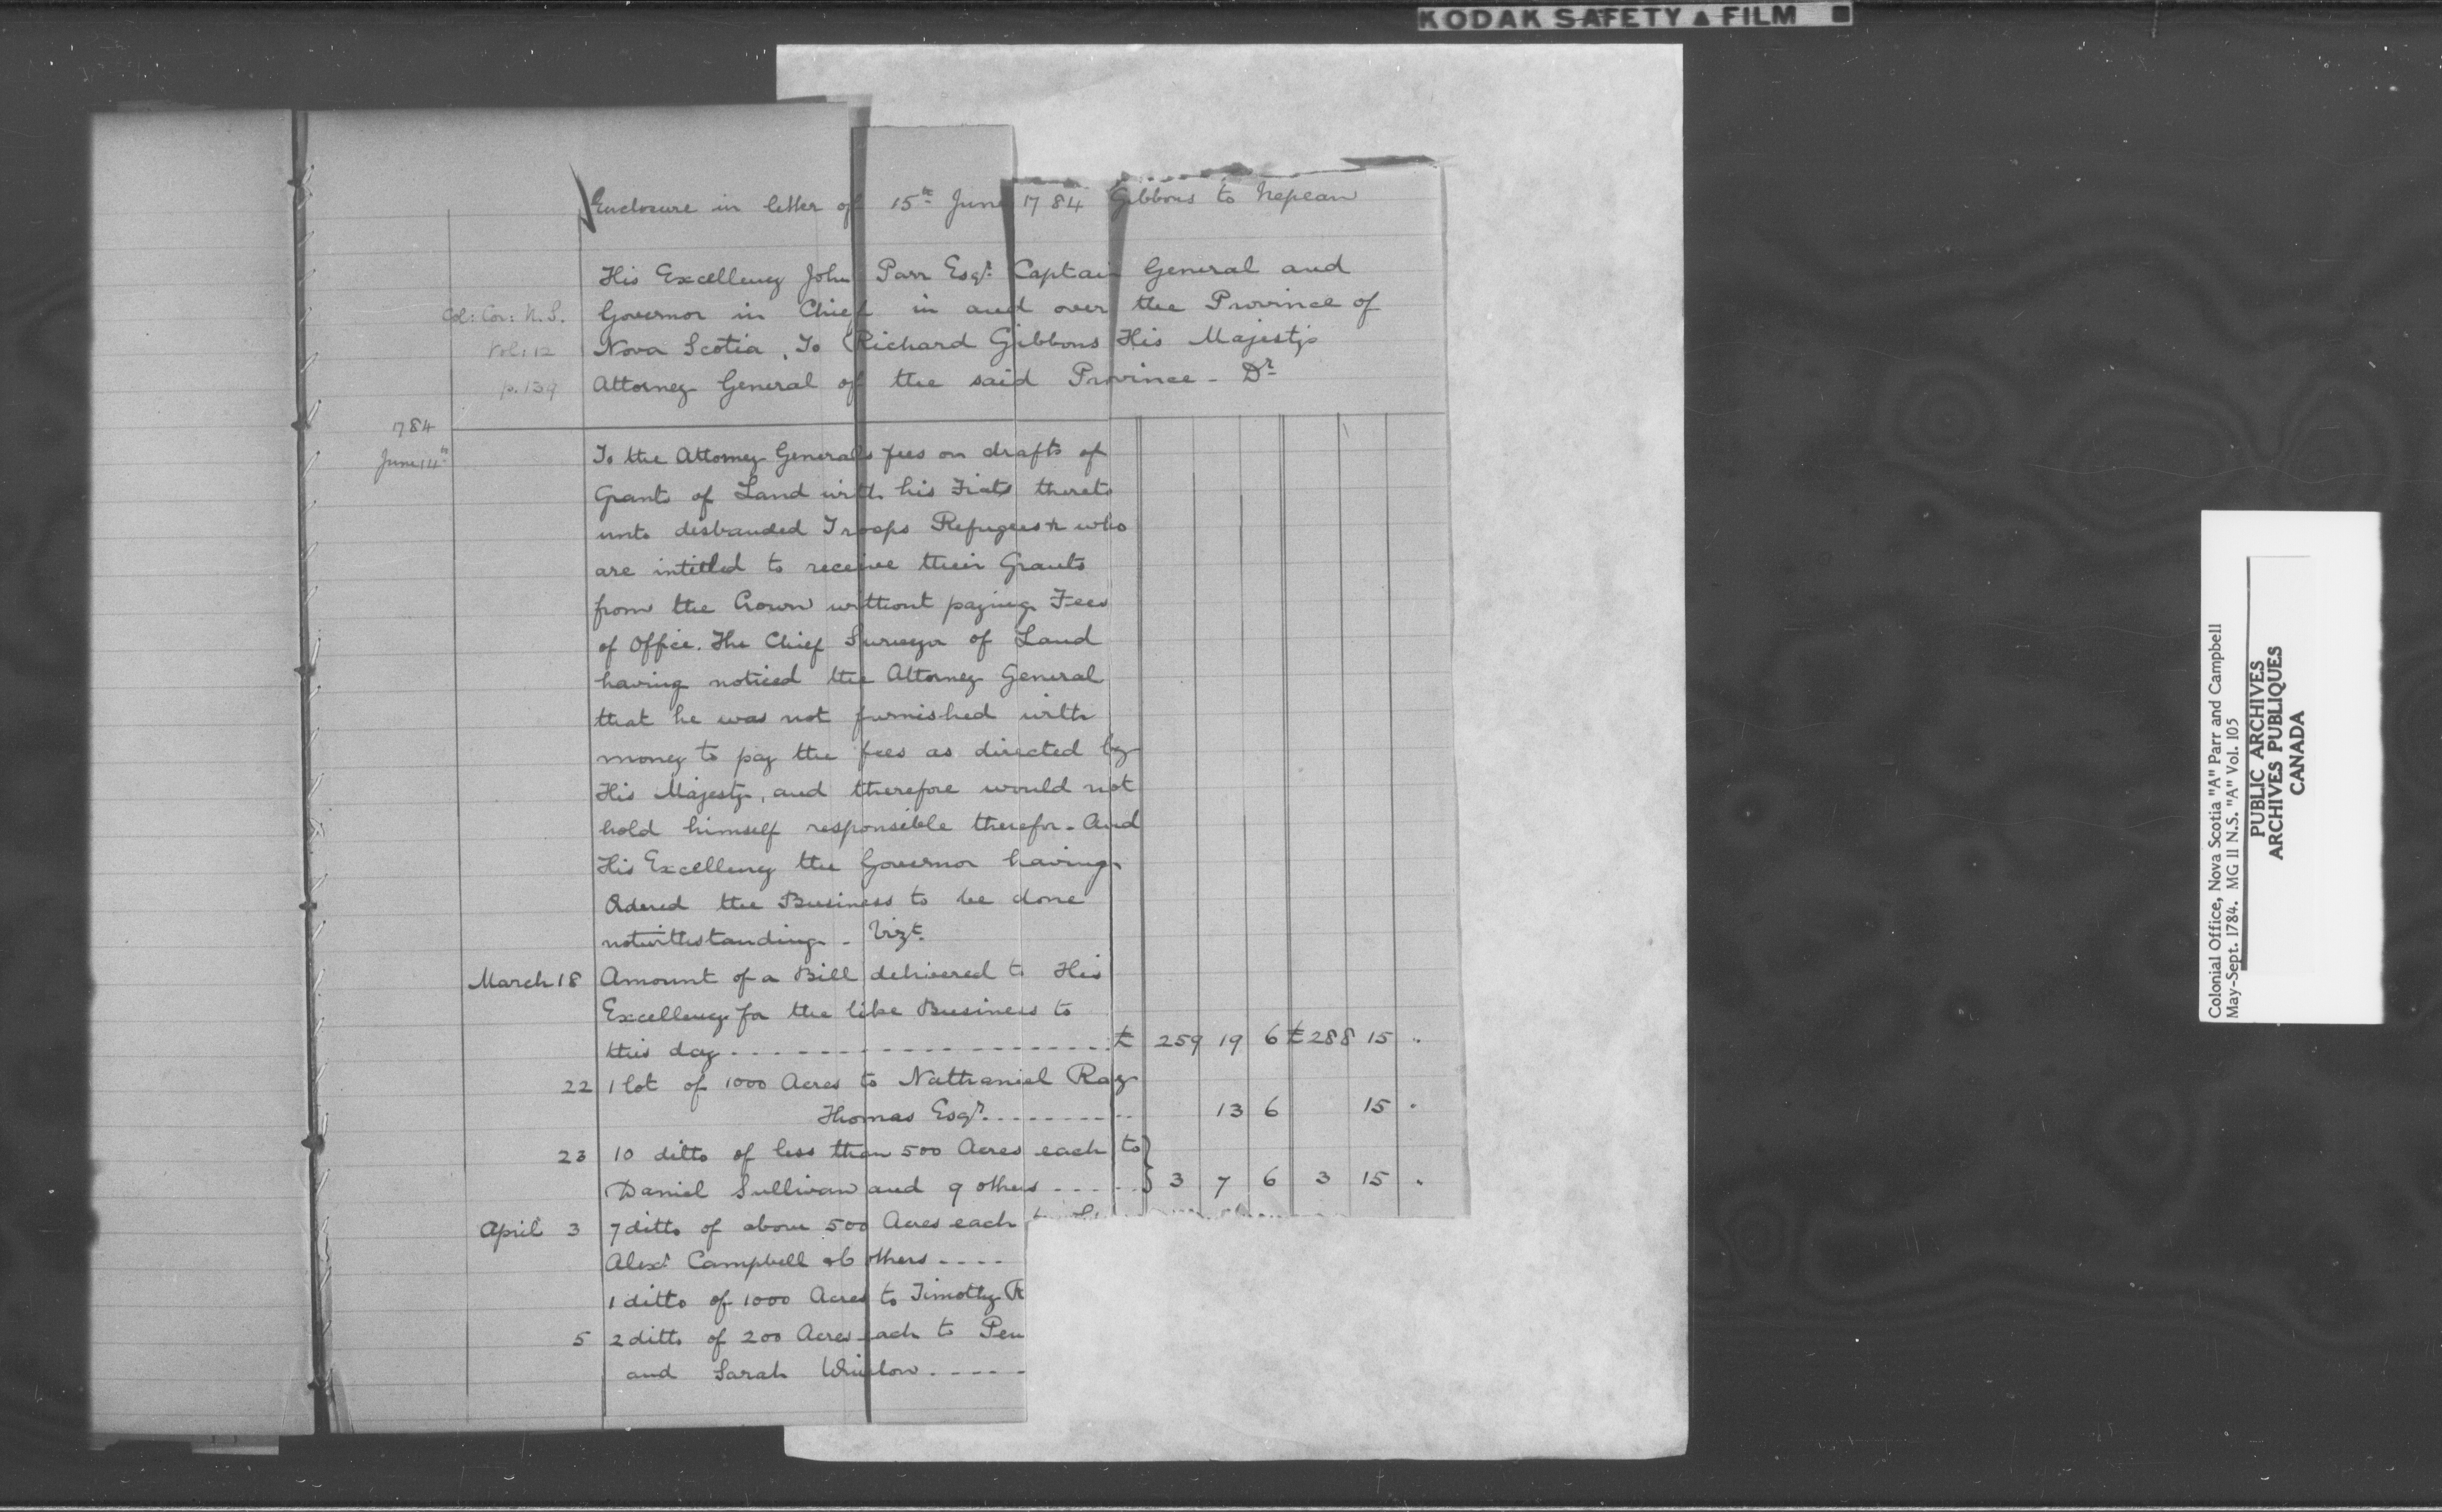 KODAK SAFETY ▲ FILM ■
Enclosure in letter of 15th June 1784 Gibbons to Nepean
His Excellency John Parr Esqr. Captain General and
Col: Cor: N.S. Governor in Chief in and over the Province of
Vol. 12 Nova Scotia, To Richard Gibbons His Majesty's
p. 139 Attorney General of the said Province - Dr
1784
June 14th To the Attorney Generals fees on drafts of
Grants of Land with his Fiats thereto
unto disbanded Troops Refugees & who
are intitled to receive their Grants
from the Crown without paying Fees
of Office. The Chief Surveyor of Land
having noticed the Attorney General
that he was not furnished with
money to pay the fees as directed by
His Majesty, and therefore would not
hold himself responsible therefor - And
His Excellency the Governor having
Ordered the Business to be done
notwithstanding - Vizt.
March 18 Amount of a Bill delivered to His
Excellency for the like Business to
this day - - - £ 259 19 6 £ 288 15 .
22 1 lot of 1000 Acres to Nathaniel Ray
Thomas Esqr. - - - 13 6 15 .
23 10 ditto of less than 500 Acres each to }
Daniel Sullivan and 9 others - - - } 3 7 6 3 15 .
April 3 7 ditto of above 500 Acres each
Alexr Campbell & 6 others - - - -
1 ditto of 1000 Acres to Timothy R
5 2 ditto of 200 Acres each to Pen
and Sarah Winslow - - - - -
Colonial Office, Nova Scotia "A" Parr and Campbell
May-Sept. 1784. MG 11 N.S. "A" Vol. 105
PUBLIC ARCHIVES
ARCHIVES PUBLIQUES
CANADA